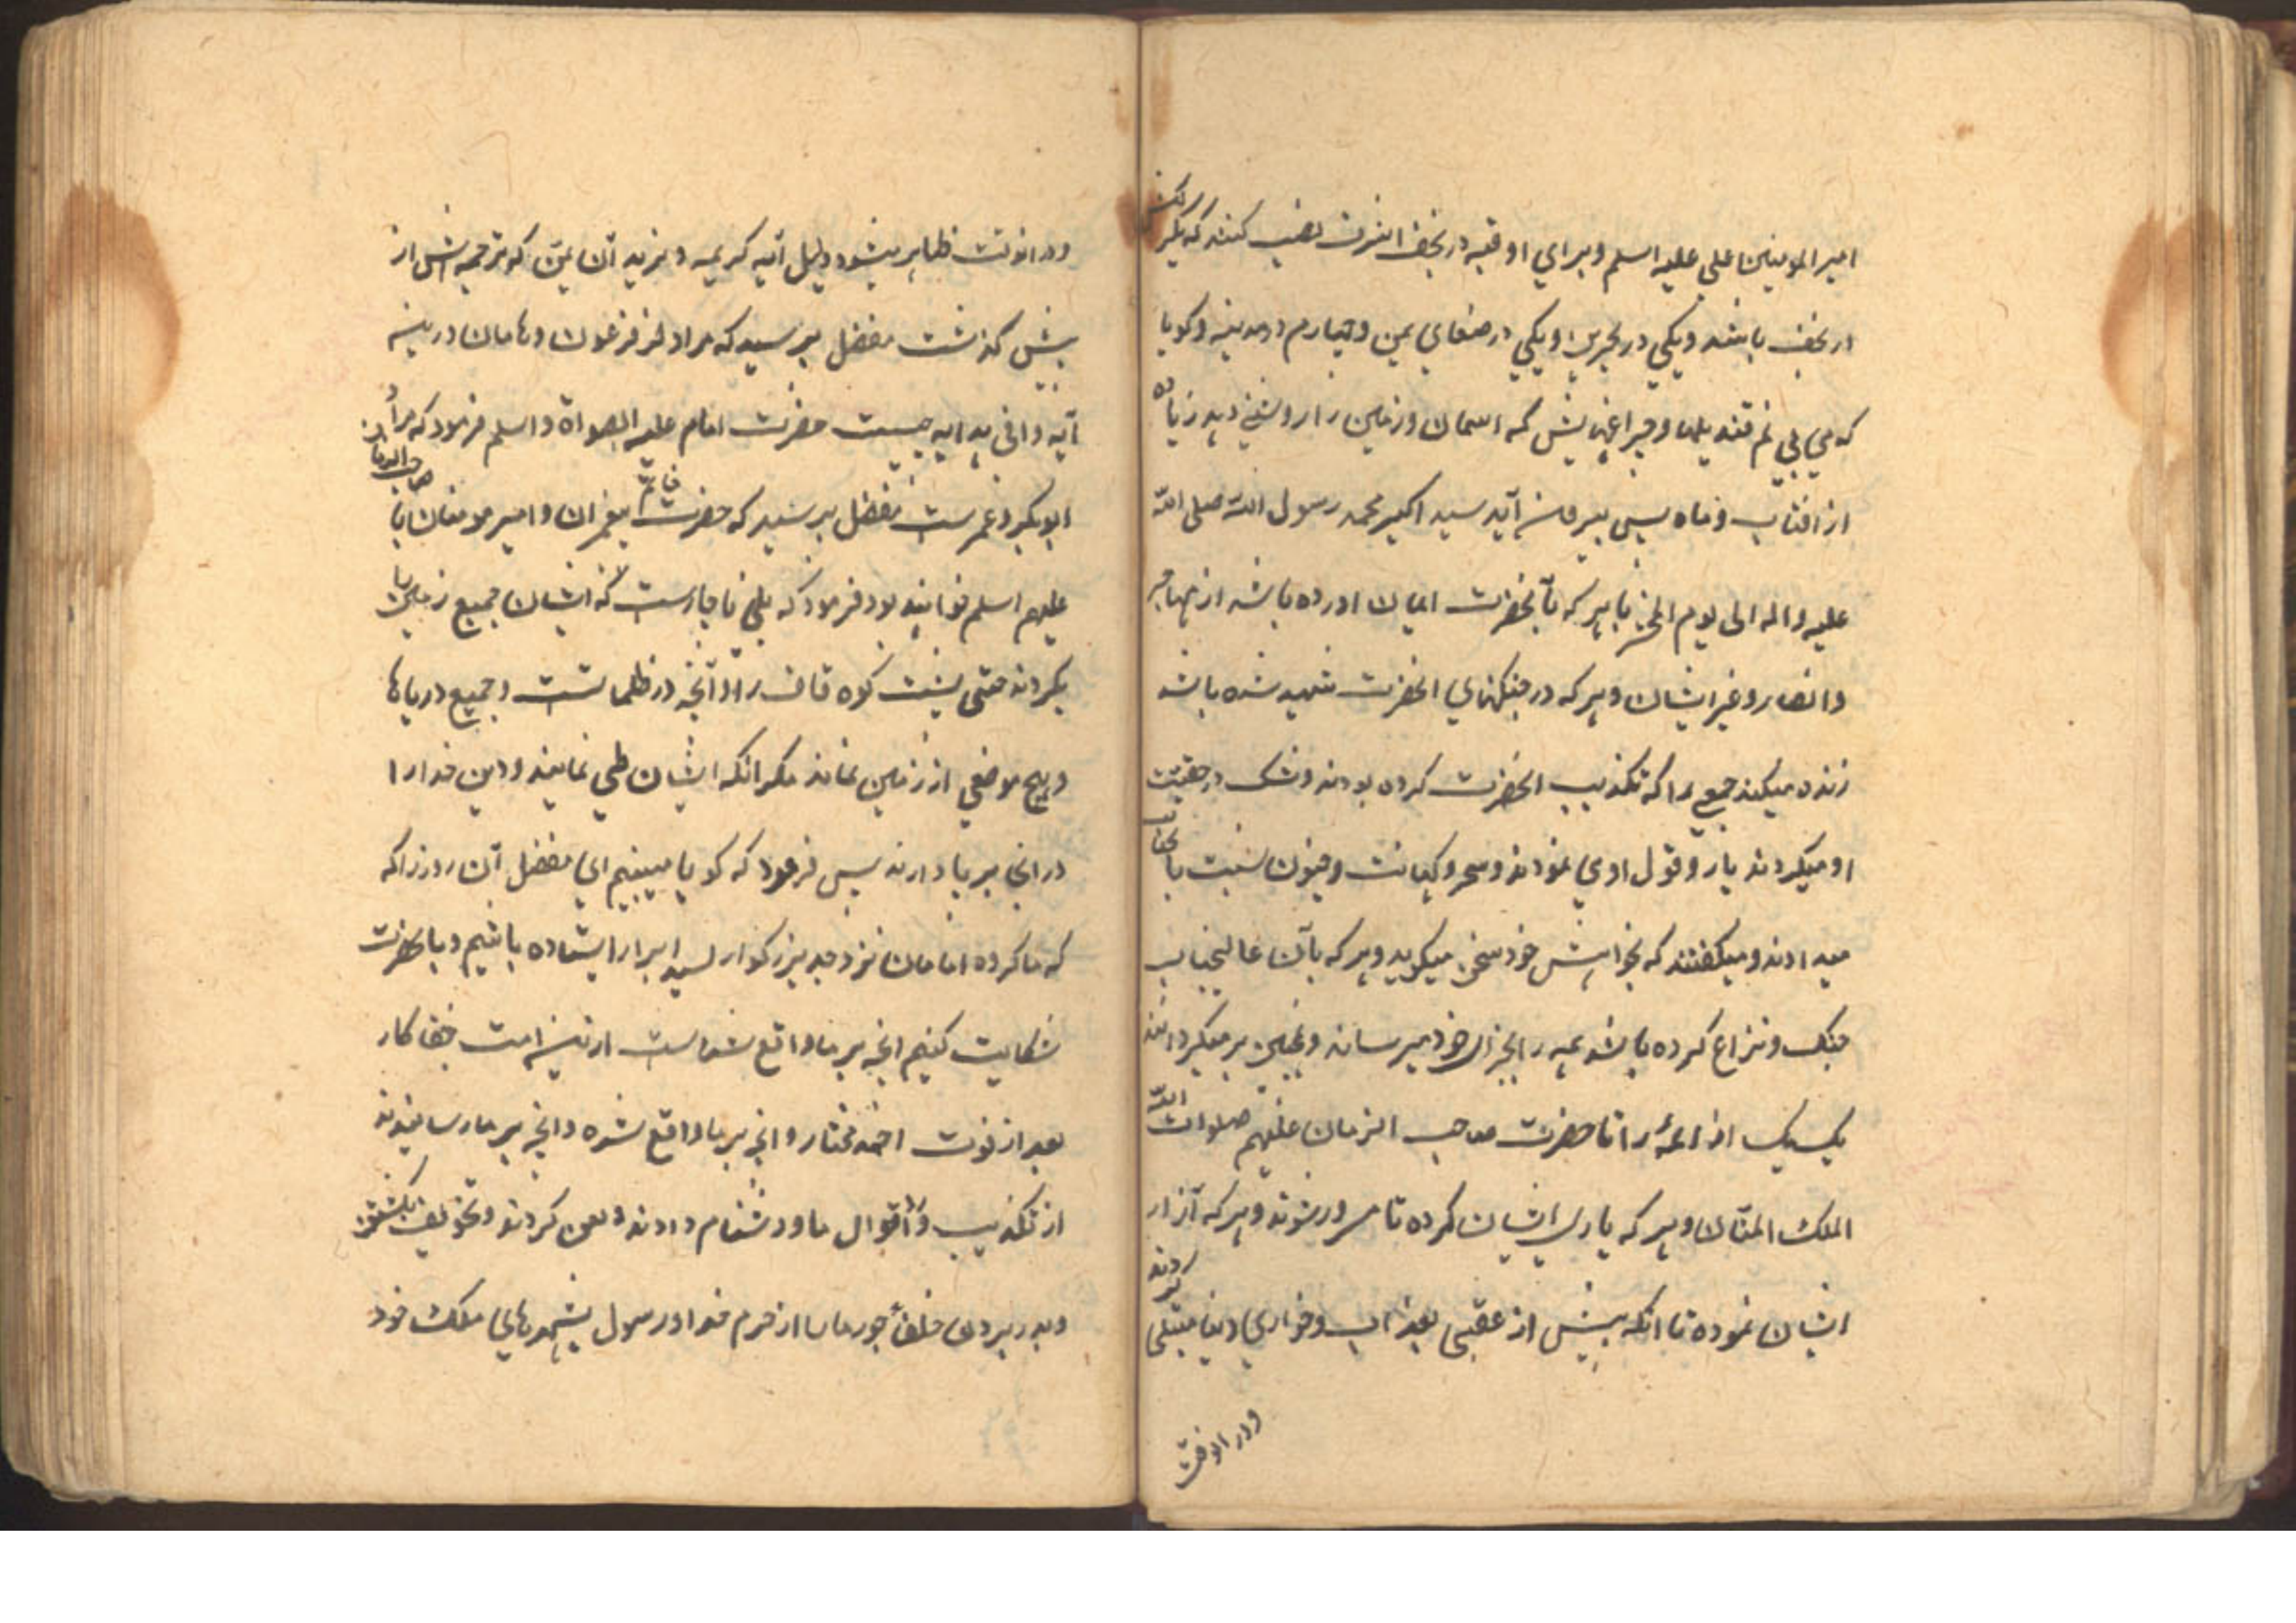 امیر المومنین علی علیه اسلم و برای او قبه در نجف اشرف نصب کنند که یکرکنش
در نجف باشد و یکی در بحرین و یکی در صنعای یمن و چهارم در مدینه و کویا
که می بینم قندیلها و چراغهایش که اسمان و زمین را روشنی دهد زیاده
از افتاب و ماه پس بیرون آید سید اکبر محمد رسول الله صلی الله
علیه و اله الی یوم الحشر با هر که بآنحضرت ایمان اورده باشد از مهاجر
و انصار و غیر ایشان و هر که در جنکهای انحضرت شهید شده باشد
زنده میکند جمعی را که تکذیب انحضرت کرده بودند و شک در حقیت
او میکردند یا رد قول اوی نمودند و سحر و کهانت و جنون نسبت بانجناب
میدادند و میکفتند که بخواهش خود سخن میکوید و هر که بآن عالیجناب
جنک و نزاع کرده باشد همه را بجزای خود میرساند و همچنین بر میکردانند
یک یک از ائمه را تا حضرت صاحب الزمان علیهم صلوات الله
الملک المنان و هر که یاری ایشان کرده تا مسرور شوند و هر که آزار
ایشان نموده تا انکه پیش از عقبی بعذاب و خواری دنیا مبتلی کردند
و در انوقت
و در انوقت ظاهر میشود دلیل آیه کریمه و نرید آن نمن که ترجمه اش از
پیش کذشت مفضل پرسید که مراد از فرعون و هامان درین
آیه وافی هدایه چیست حضرت امام علیه الصواة و اسلم فرمود که مراد
ابوبکر و عمرست مفضل پرسید که حضرت خاتم پیغمبران و امیر مومنان با صاحب الزمان
علیهم اسلم خواهند بود فرمود که بلی ناچارست که ایشان جمیع زمین را
بکردند حتی پشت کوه قاف را و آنچه در ظلماتست و جمیع دریاها
و هیچ موضعی از زمین نماند مکر انکه ایشان طی نمایند و دین خدا را
در انجا بر پا دارند پس فرمود که کویا میبینم ای مفضل آن روز را که
که ما کروه امامان نزد جد بزرکوار سید ابرار ایستاده باشیم و بانحضرت
شکایت کنیم انچه بر ما واقع شداست ازین امت جفا کار
بعد از فوت احمد مختار و انچه بر ما واقع شده و انچه بر ما رسانیدند
از تکذیب و رد اقوال ما و دشنام دادند و لعن کردند و تخویف بکشتن
و بدر بردن خلفأ جور ما را از حرم خدا و رسول بشهرهای ملک خود